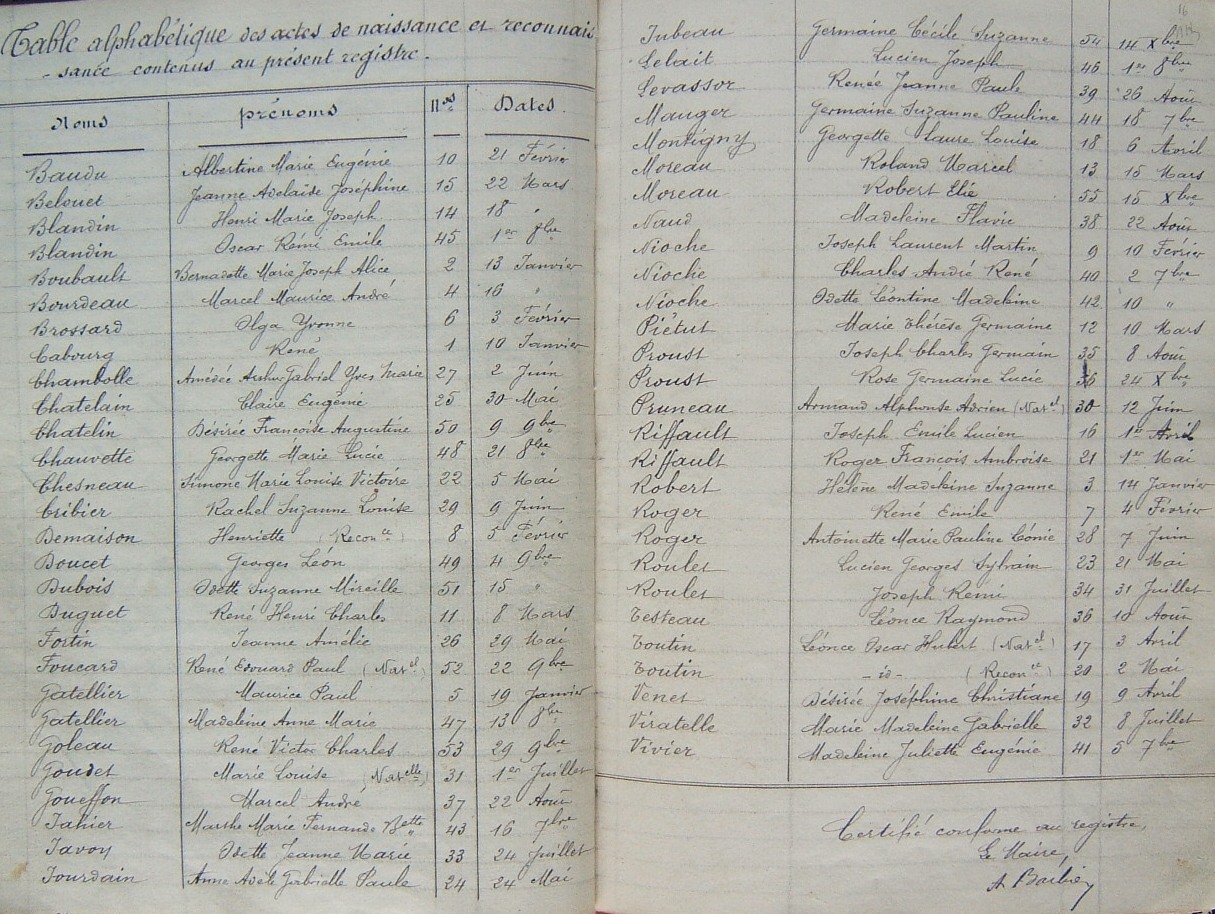 Table alphabétique des actes de naissance et reconnais
- sance contenus au présent registre.
Noms prénoms Nos Dates
Baudu Albertine Marie Eugénie 10 21 Février
Belouet Jeanne Adelaïde Joséphine 15 22 Mars
Blandin Henri Marie Joseph 14 18 "
Blandin Oscar Rémi Emile 45 1er 8bre
Boubault Bernadette Marie Joseph Alice 2 13 Janvier
Bourdeau Marcel Maurice André 4 16 "
Brossard Olga Yvonne 6 3 Février
Cabourg René 1 10 Janvier
Chambolle Amédée Arthur Gabriel Yves Marie 27 2 Juin
Chatelain Claire Eugénie 25 30 Mai
Chatelin Désirée Francoise Augustine 50 9 9bre
Chauvette Georgette Marie Lucie 48 21 8bre
Chesneau Simone Marie Louise Victoire 22 5 Mai
Cribier Rachel Suzanne Louise 29 9 Juin
Demaison Henriette (Reconce) 8 5 Février
Doucet Georges Léon 49 4 9bre
Dubois Odette Suzanne Mireille 51 15 "
Duguet René Henri Charles 11 8 Mars
Fortin Jeanne Amélie 26 29 Mai
Foucard René Edouard Paul (Natel) 52 22 9bre
Gatellier Maurice Paul 5 19 Janvier
Gatellier Madeleine Anne Marie 47 13 8bre
Goleau René Victor Charles 53 29 9bre
Goudet Marie Louise (Natelle) 31 1er Juillet
Goueffon Marcel André 37 22 Août
Jahier Marthe Marie Fernande Bette 43 16 7bre
Javoy Odette Jeanne Marie 33 24 Juillet
Jourdain Anne Adèle Gabrielle Paule 24 24 Mai
16
Jubeau Germaine Cécile Suzanne 54 14 Xbre
Lelait Lucien Joseph 46 1er 8bre
Levassor Renée Jeanne Paule 39 26 Août
Mauger Germaine Suzanne Pauline 44 18 7bre
Montigny Georgette Laure Louise 18 6 Avril
Moreau Roland Marcel 13 15 Mars
Moreau Robert Elie 55 15 Xbre
Naud Madeleine Flavie 38 22 Août
Nioche Joseph Laurent Martin 9 10 Février
Nioche Charles André René 40 2 7bre
Nioche Odette Léontine Madeleine 42 10 "
Piétut Marie Thérèse Germaine 12 10 Mars
Proust Joseph Charles Germain 35 8 Août
Proust Rose Germaine Lucie 56 24 Xbre
Pruneau Armand Alphonse Adrien (Natel) 30 12 Juin
Riffault Joseph Emile Lucien 16 1er Avril
Riffault Roger Francois Ambroise 21 1er Mai
Robert Hélène Madeleine Suzanne 3 14 Janvier
Roger René Emile 7 4 Février
Roger Antoinette Marie Pauline Léonie 28 7 Juin
Roulet Lucien Georges Sylvain 23 21 Mai
Roulet Joseph Rémi 34 31 Juillet
Testeau Léonce Raymond 36 10 Août
Toutin Léonce Oscar Hubert (Natel) 17 3 Avril
Toutin - id - (Reconce) 20 2 Mai
Venet Désirée Joséphine Christiane 19 9 Avril
Viratelle Marie Madeleine Gabrielle 32 8 Juillet
Vivier Madeleine Juliette Eugénie 41 5 7bre
Certifié conforme au registre,
Le Maire,
A Barbier